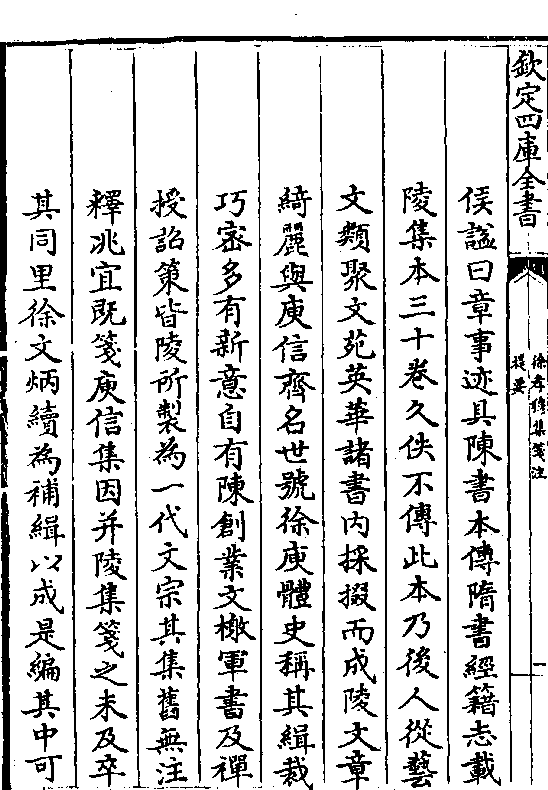 欽定四庫全書
徐孝穆集箋注
提要
侯諡曰章事迹具陳書本傳隋書經籍志載
陵集本三十卷久佚不傳此本乃後人從藝
文類聚文苑英華諸書內採掇而成陵文章
綺麗與庾信齊名世號徐庾體史稱其緝裁
巧密多有新意自有陳創業文檄軍書及禪
授詔策皆陵所製為一代文宗其集舊無注
釋兆宜既箋庾信集因并陵集箋之未及卒
其同里徐文炳續為補緝以成是編其中可